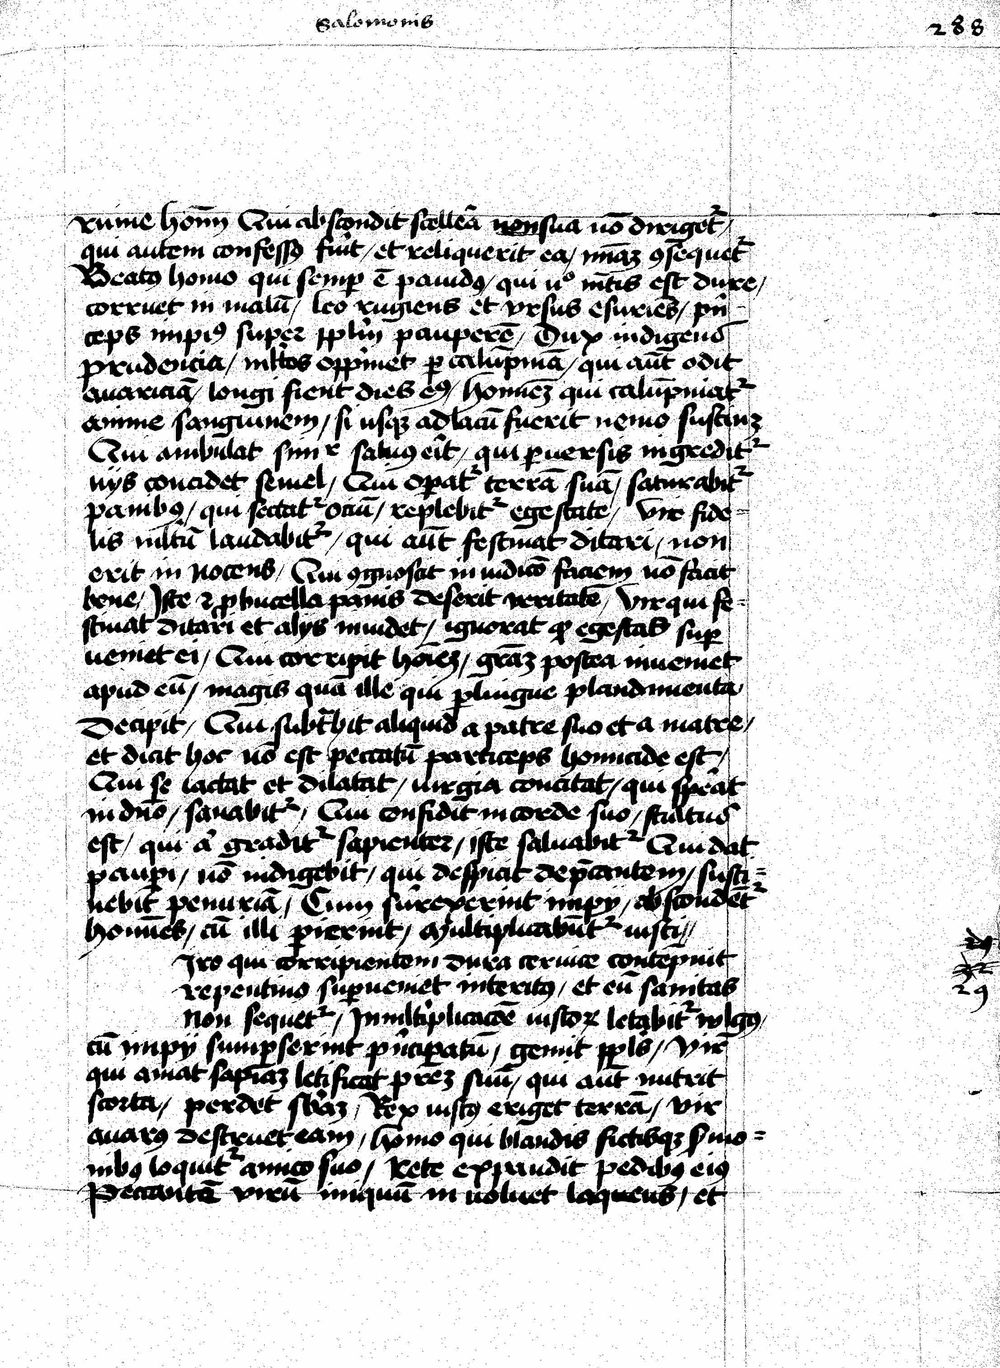 Salomonis
288
ruine hoīm Qui abscondit scelera sua nō dirigetr /
qui autem confessꝰ fūit / et reliquerit ea / mīaꝫ ꝯsequetr
Beatꝰ homo qui semꝑ ē pauidꝰ / qui uº mētis est dure /
corruet in malū / leo rugiens et vrsus esuriēs / prī-
ceps impiꝰ super pplm̄ pauperē / Dux indigens
prudencia / ml̄tos opprimet ꝑ calūpniā / qui aūt odit
auariciā / longi fient dies eiꝰ / hominēꝫ qui calūpniatr
anime sanguinem / si usqꝫ ad lacū fuerit nemo sustinꝫ
Qui ambulat simplr saluꝰ eīt / qui ꝑuersis ingreditr
vijs concidet semel / Qui oꝑatr terrā suā / saturabitr
panibꝰ / qui sectatr ociū / replebitr egestate / vir fide=
lis ml̄tū laudabitr / qui aūt festinat ditari / non
erit in nocens / Qui ꝯgnoscit in iudicō faciem nō facit
bene / Iste ⁊ ꝓ bucella panis deserit veritatē / vir qui fe=
stinat ditari et alijs inuidet / ignorat ꝙ egestas suꝑ
ueniet ei / Qui corripit hoīeꝫ / grāꝫ postea inueniet
apud eū / magis quā ille qui ꝑ lingue blandimenta
Decipit / Qui subtrahit aliquid a patre suo et a matre /
et dicit hoc nō est peccatū particeps homicide est /
Qui se iactat et dilatat / iurgia concitat / qui sperat
in dnō / sanabitr / Qui confidit in corde suo / stultus
est / qui aū graditr sapienter / iste saluabitr Qui dat
pauꝑi / nō indigebit / qui despicit dep̄cantem / susti=
nebit penuriā / Cum surexerint impij / abscondētr
homines / cū illi ꝑierint / Multiplicabūtr iusti //
Iro qui corripientem dura ceruice contepnit
repentino suꝑueniet interitꝰ / et eū sanitas
Non sequetr / In ml̄tiplicacōe iustoꝝ letabitr wlgꝰ /
cū impij sumpserint prīcipatū / gemit ppls / Vir
qui amat sapiaꝫ letificat prēꝫ suū / qui aūt nutrit
scorta / perdet sbāꝫ / Rex iustꝰ eriget terrā / vir
auarꝰ destruet eam / homo qui blandis fictisqꝫ ẜmo=
nibꝰ loquitr amico suo / Rete expandit pedibꝰ eiꝰ
Peccantē virū iniquū in uoluet laqueus / et
29